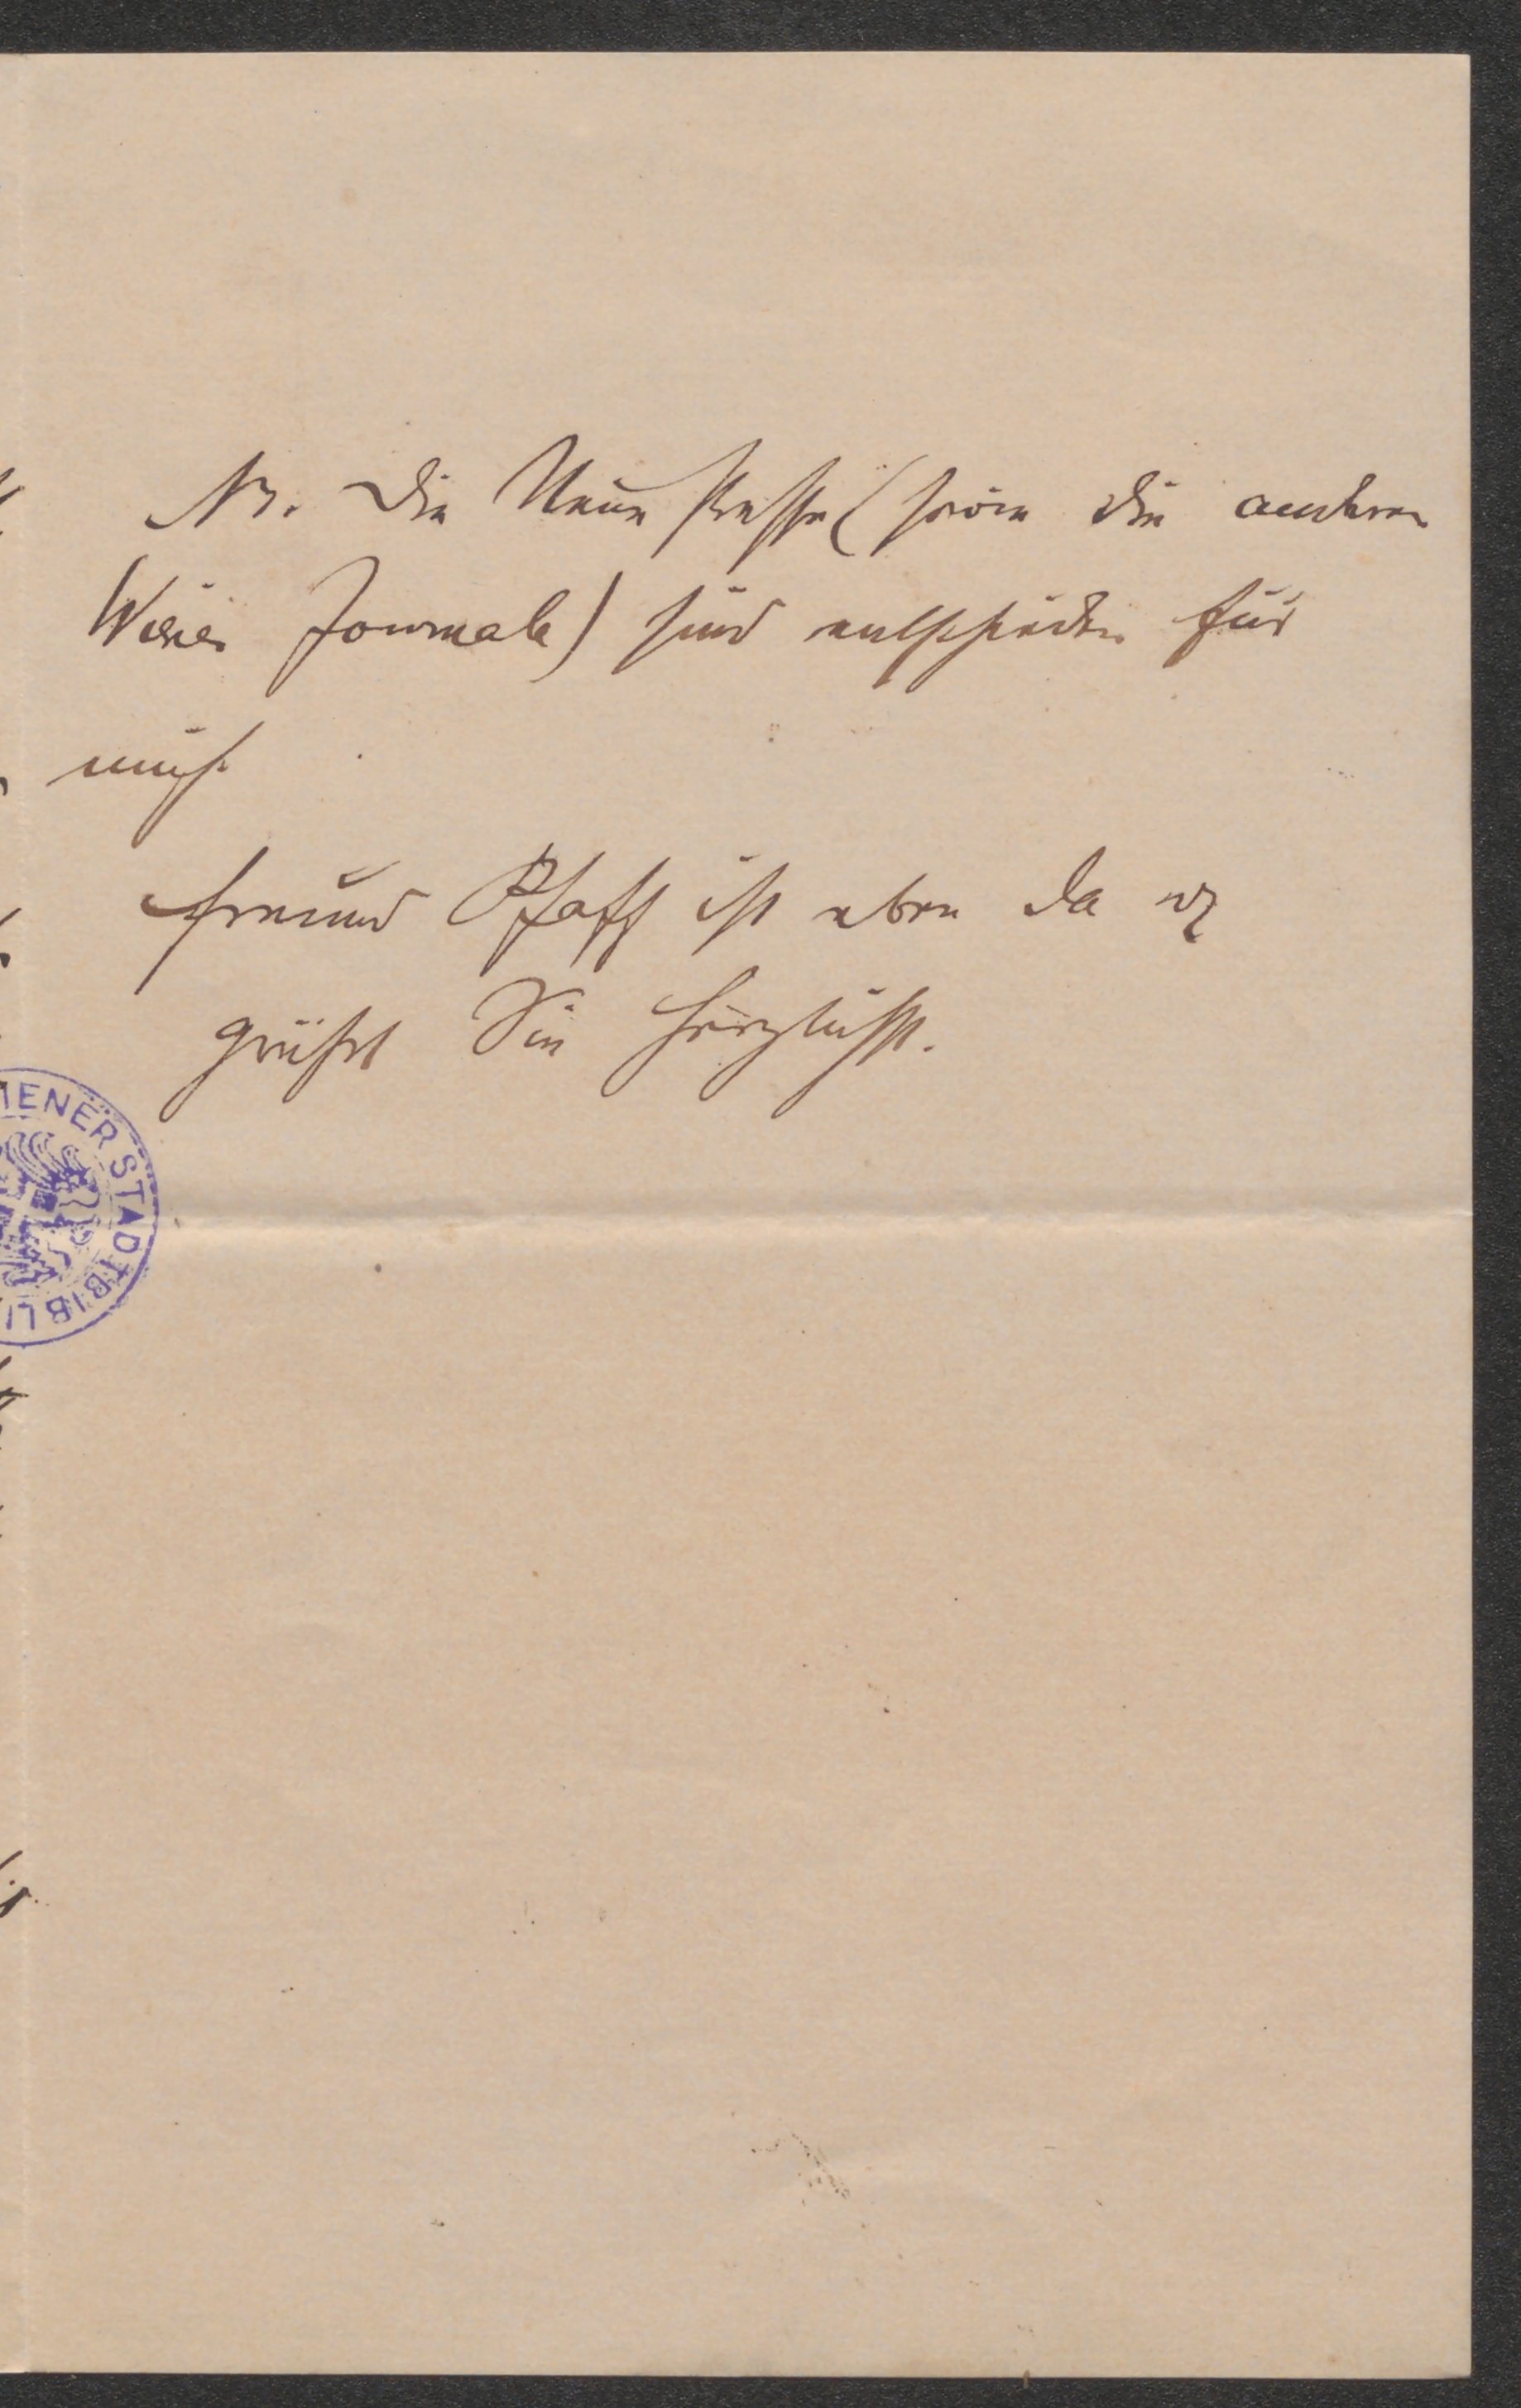 NB. Die Neue Presse (sowie die anderen
Wiener Journale) sind entschieden für
mich.
Freund Pfaff ist eben da u
grüßt Sie herzlichst.
IENER STADTBIBLI